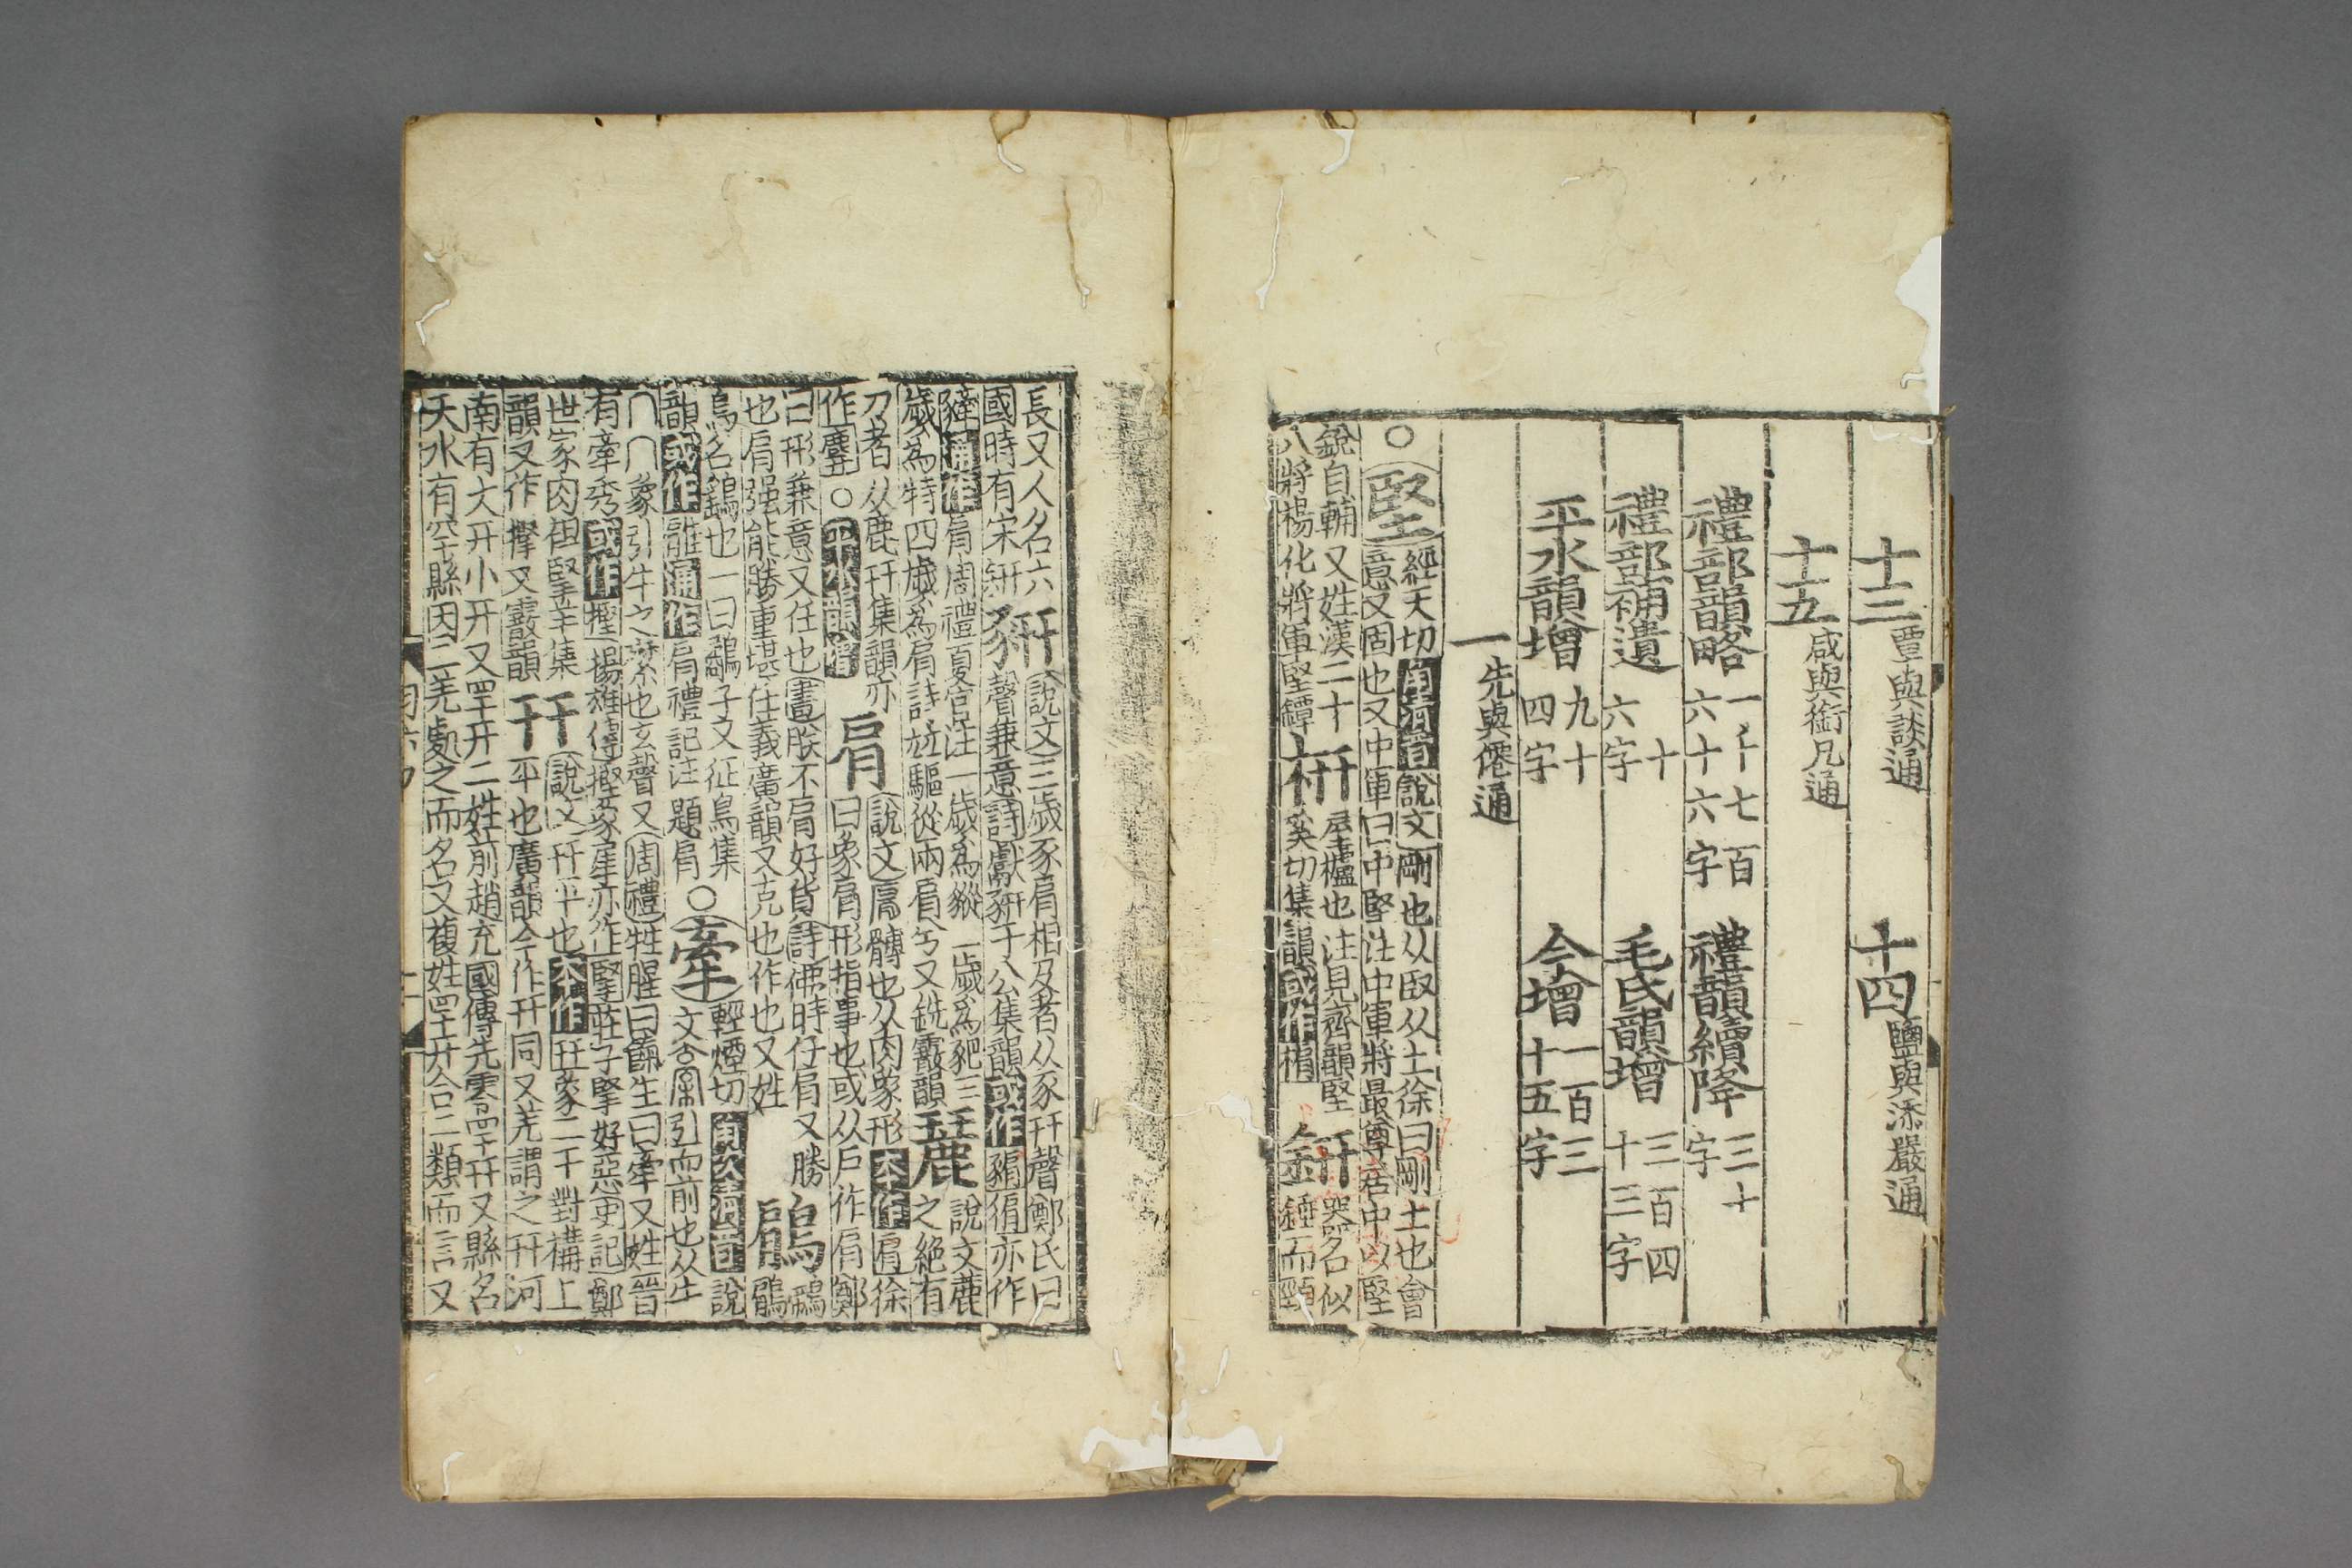 十三覃與談通　十四鹽與添嚴通
十五咸與銜凡通
禮部韻略一千七百六十六字　禮韻續降三十字
禮部補遺十六字　毛氏韻增三百四十三字
平水韻增九十四字　今增一百三十五字
一先與僊通
○堅經天切角清音說文剛也从臤从土徐曰剛土也會
意又固也又中軍曰中堅注中軍將最尊居中以堅
銳自輔又姓漢二十八將楊化將軍堅鐔枅屋櫨也注見齊韻堅奚切集韻或作鈃器名似鍾而頸
長又人名六國時有宋銒豜說文三歲豕肩相及者从豕幵聲鄭氏曰
聲兼意詩獻豜于公集韻或作猏亦作
通作肩周禮夏官注一歲為豵二歲為豝三
歲為特四歲為肩詩並驅從兩肩兮又銑霰韻麉說文鹿之絕有
力者从鹿幵集韻亦作○平水韻增肩說文髆也从肉象形本作肩徐
曰象肩形指事也或从戶作肩鄭
曰形兼意又任也書朕不肩好貨詩佛時仔肩又勝
也肩强能勝重堪任義廣韻又克也作也又姓鵳
鳥名鷂也一曰鸇子又征鳥集
韻或作通作肩禮記注題肩○牽輕煙切角次清音說
文本作引而前也从牛
冂冂象引牛之縻也玄聲又周禮牲腥曰餼生曰牽又姓晉
有牽秀或作摼揚雄傳摼象犀亦作掔莊子掔好惡史記鄭
世家肉袒掔羊集
韻又作㩃又霰韻幵說文幵平也本作幵象二干對構上
平也廣韻今作幵同又羌謂之幵河
南有大幵小幵又罕幵二姓前趙充國傳先零罕幵又縣名
天水有罕幵縣因二羌處之而名又複姓罕幵合二類而言又